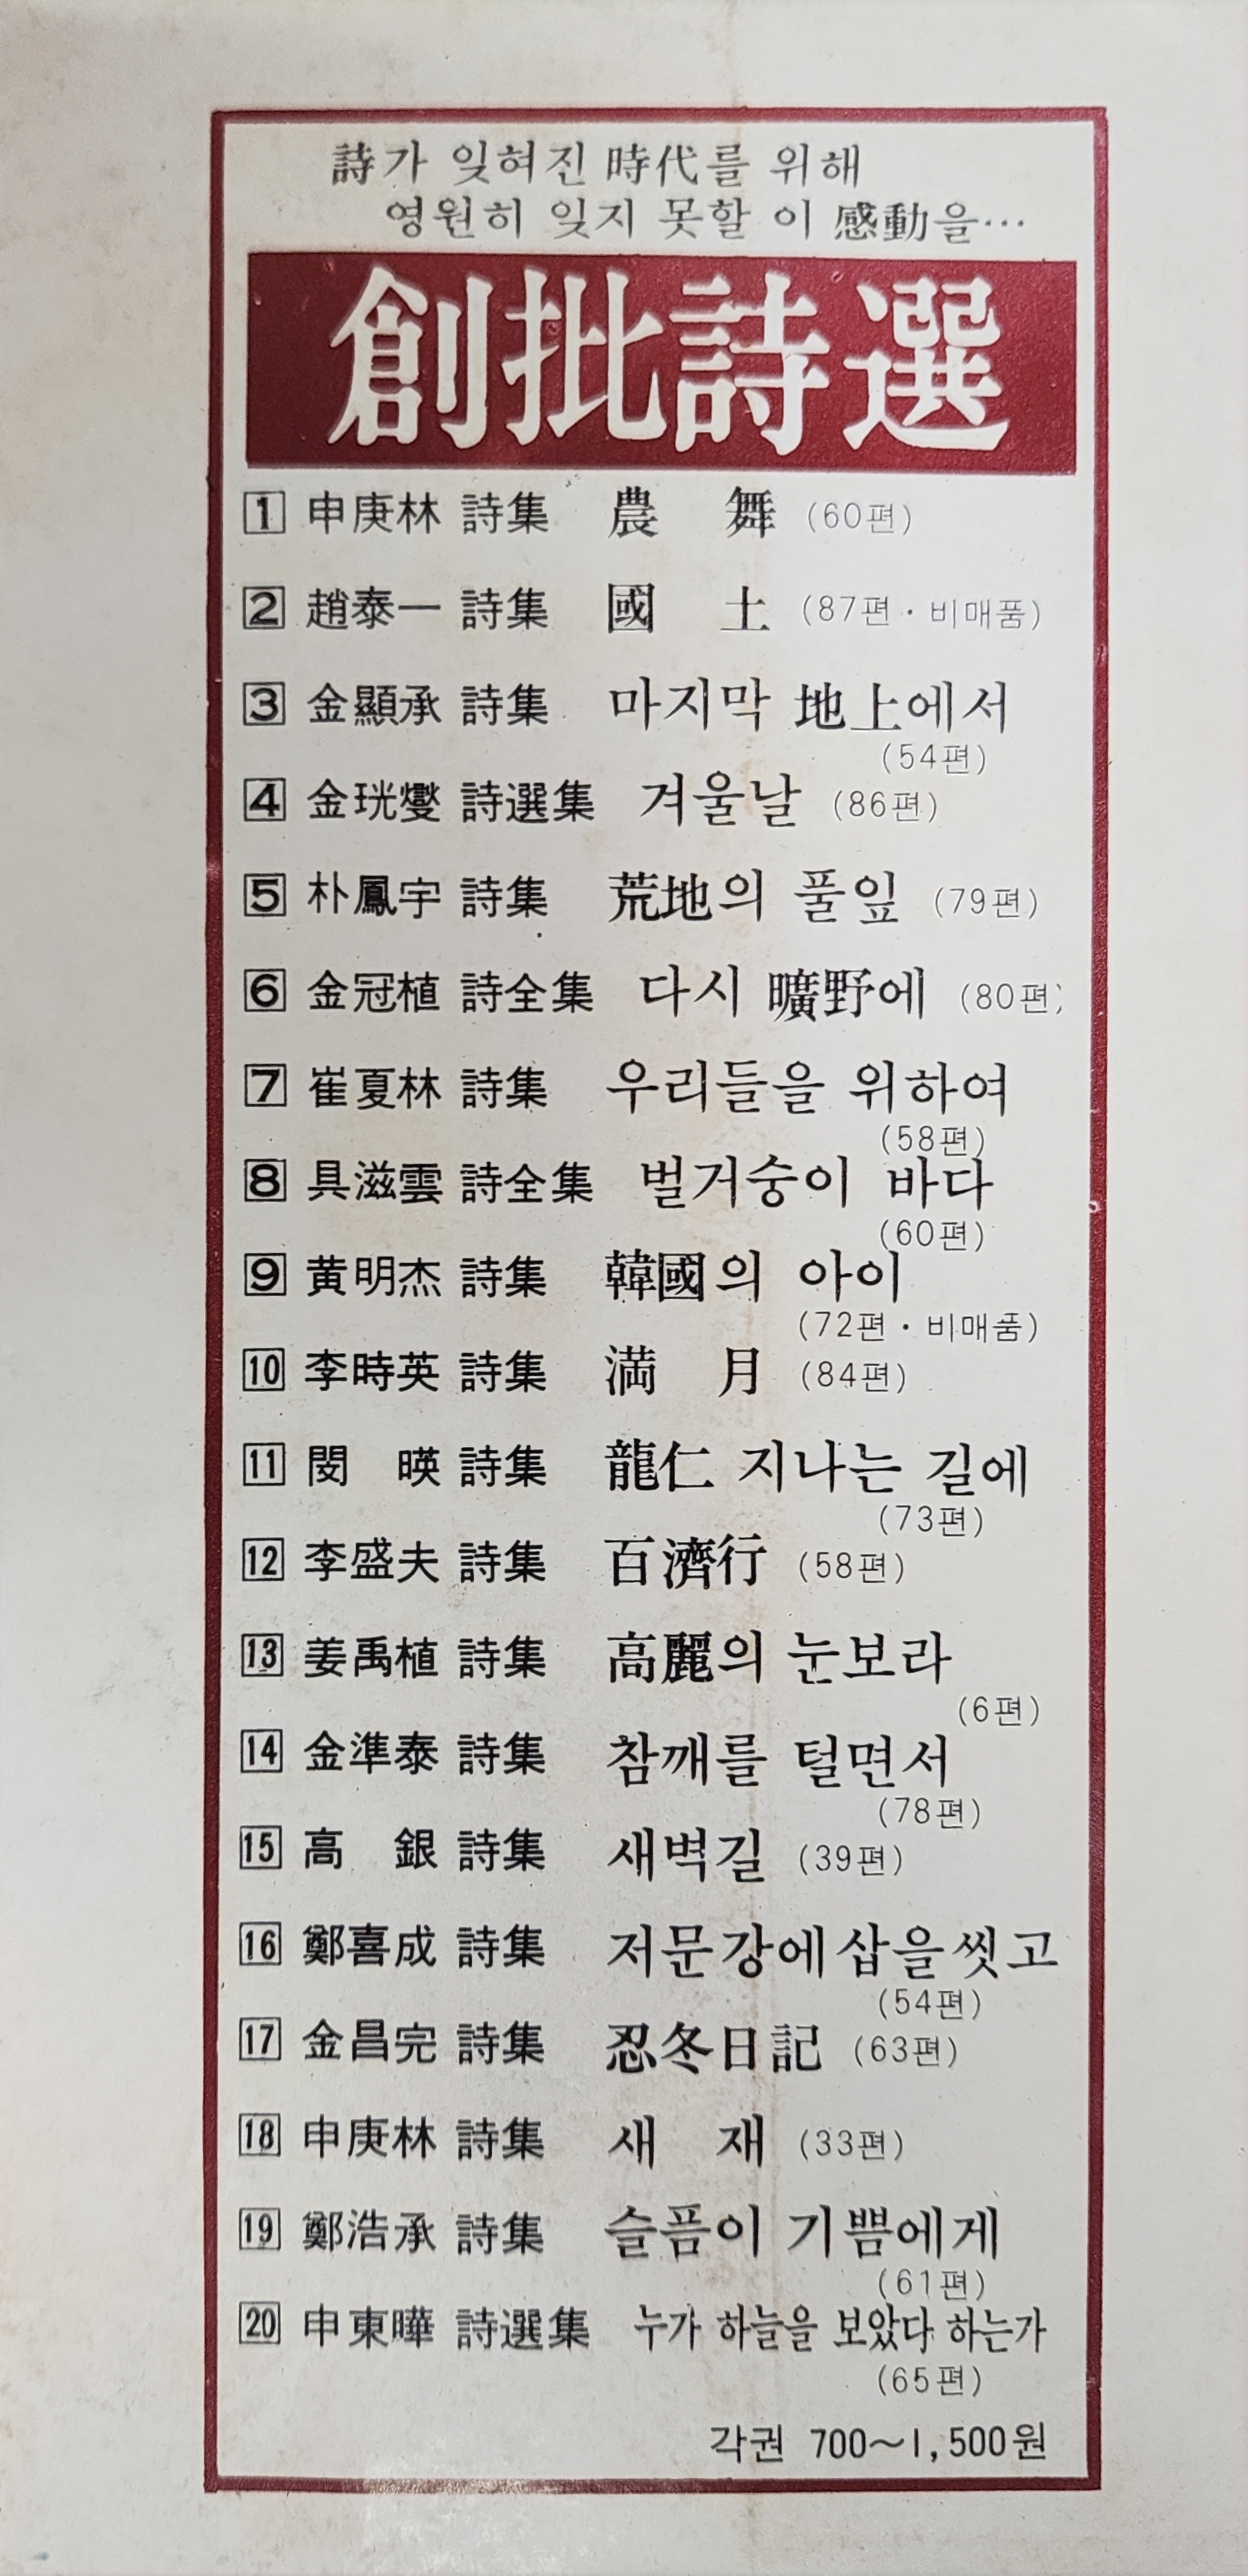 詩가 잊혀진 時代를 위해
영원히 잊지 못할 이 感動을…
創批詩選
1 申庚林 詩集 農 舞 (60편)
2 趙泰一 詩集 國 土 (87편·비매품)
3 金顯承 詩集 마지막 地上에서
(54편)
4 金珖燮 詩選集 겨울날 (86편)
5 朴鳳宇 詩集 荒地의 풀잎 (79편)
6 金冠植 詩全集 다시 曠野에 (80편)
7 崔夏林 詩集 우리들을 위하여
(58편)
8 具滋雲 詩全集 벌거숭이 바다
(60편)
9 黄明杰 詩集 韓國의 아이
(72편·비매품)
10 李時英 詩集 満 月 (84편)
11 閔 暎 詩集 龍仁 지나는 길에
(73편)
12 李盛夫 詩集 百濟行 (58편)
13 姜禹植 詩集 高麗의 눈보라
(6편)
14 金準泰 詩集 참깨를 털면서
(78편)
15 高 銀 詩集 새벽길 (39편)
16 鄭喜成 詩集 저문강에 삽을 씻고
(54편)
17 金昌完 詩集 忍冬日記 (63편)
18 申庚林 詩集 새 재 (33편)
19 鄭浩承 詩集 슬픔이 기쁨에게
(61편)
20 申東曄 詩選集 누가 하늘을 보았다 하는가
(65편)
각권 700~1,500원